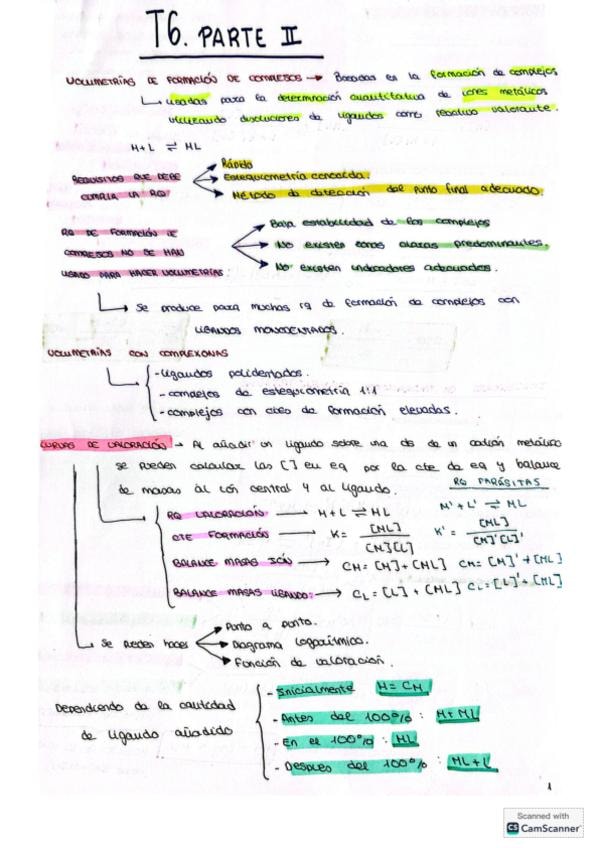 T6. PARTE II
VOLUMETRÍAS DE FORMACIÓN DE COMPLEJOS → Basadas en la formación de complejos
usadas para la determinación cuantitativa de iones metálicos
utilizando disoluciones de ligandos como reactivo valorante.
M+L ⇌ ML
REQUISITOS QUE DEBE
CUMPLIR LA RQ
Rápida
Estequiometría conocida.
Método de detección del punto final adecuado.
RQ DE FORMACIÓN DE
COMPLEJOS NO SE HAN
USADO PARA HACER VOLUMETRÍAS
Baja estabilidad de los complejos
No existen zonas claras predominantes.
No existen indicadores adecuados.
Se produce para muchas rq de formación de complejos con
LIGANDOS MONODENTADOS.
VOLUMETRÍAS CON COMPLEXONAS
-ligandos polidentados.
-complejos de estequiometría 1:1
-complejos con ctes de formación elevadas.
CURVAS DE VALORACIÓN → Al añadir un ligando sobre una ds de un catión metálico
se pueden calcular las [ ] en eq por la cte de eq y balance
de masas al ión central y al ligando.
RQ PARÁSITAS
RQ VALORACIÓN → M+L ⇌ ML
M'+L' ⇌ ML
CTE FORMACIÓN → K = [ML] / [M][L]
K' = [ML] / [M]'[L]'
BALANCE MASAS IÓN → CM = [M]+[ML] CM = [M]'+[ML]
BALANCE MASAS LIGANDO: → CL = [L]+[ML] CL = [L]'+[ML]
Se pueden hacer
Punto a punto.
Diagrama logarítmico.
Función de valoración.
Dependiendo de la cantidad
de ligando añadido
- Inicialmente M = CM
- Antes del 100% : M+ML
- En el 100% : ML
- Después del 100% : ML+L
1
Scanned with
CS CamScanner